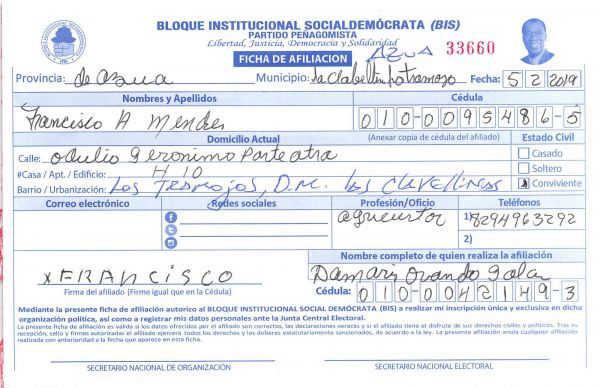 BLOQUE INSTITUCIONAL SOCIALDEMÓCRATA (BIS)
PARTIDO PEÑAGOMISTA
Libertad, Justicia, Democracia y Solidaridad
FICHA DE AFILIACION AZUA 33660
Provincia: de azua Municipio: Fecha: 5/2/2019
Nombres y Apellidos Cédula
Francisco A Mendes 010-0095486-5
Domicilio Actual (Anexar copia de cédula del afiliado) Estado Civil
Calle: odulio Geronimo Parte atra Casado
#Casa / Apt. / Edificio: H 10 Soltero
Barrio / Urbanización: Los Tramojos, D.M. Las Clavellinas Conviviente
Correo electrónico Redes sociales Profesión/Oficio Teléfonos
1) 8294963292
2)
Nombre completo de quien realiza la afiliación
x FRANCISCO Damaris Ovando
Firma del afiliado (Firme igual que en la Cédula) Cédula: 010-0042149-3
Mediante la presente ficha de afiliación autorizo al BLOQUE INSTITUCIONAL SOCIAL DEMÓCRATA (BIS) a realizar mi inscripción única y exclusiva en dicha
organización política, así como a registrar mis datos personales ante la Junta Central Electoral.
La presente ficha de afiliación es válida si los datos ofrecidos por el afiliado son correctos, las declaraciones veraces y si el afiliado tiene el disfrute de sus derechos civiles y políticos. Tras su
recepción, sello y firmas autorizadas el afiliado ejercerá todos los derechos y los deberes estatutariamente sancionados, de acuerdo a la ley. La presente afiliación anula cualquier afiliación
realizada con anterioridad a la fecha que aparece en esta ficha.
SECRETARIO NACIONAL DE ORGANIZACIÓN SECRETARIO NACIONAL ELECTORAL